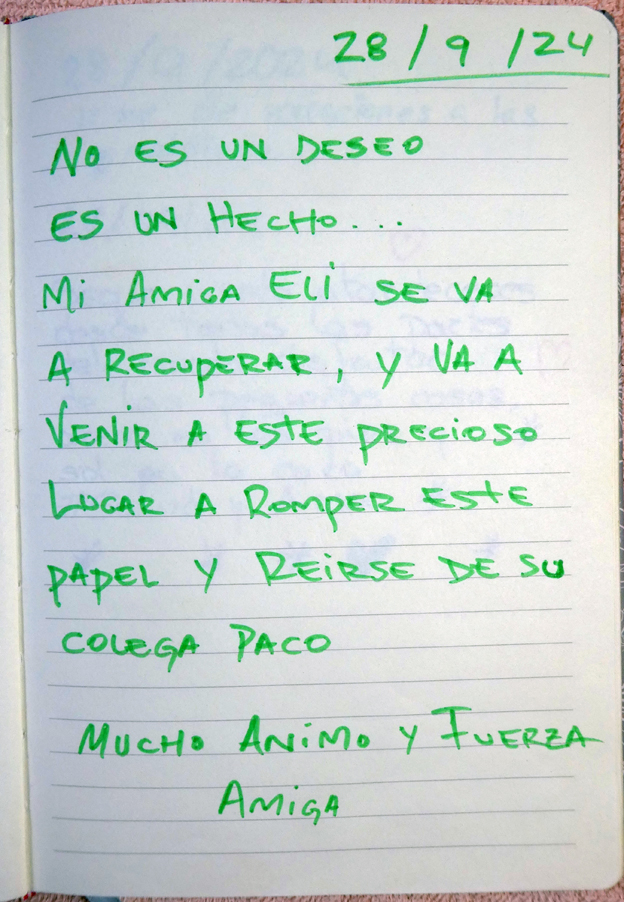 28/9/24
No ES UN DESEO
ES UN HECHO...
Mi AMiGA ELi SE VA
A RECUPERAR, Y VA A
VENIR A ESTE PRECIOSO
LUGAR A ROMPER ESTE
PAPEL Y REIRSE DE SU
COLEGA PACO
MUCHO ANiMO Y FUERZA
AMiGA